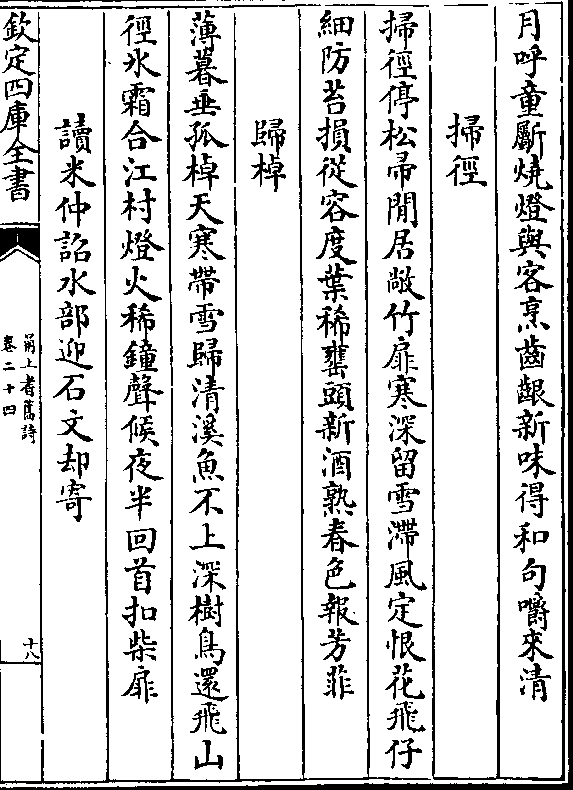 月呼童斸燒燈與客烹齒齦新味得和句嚼來清
掃徑
掃徑停松帚閒居敞竹扉寒深留雪滯風定恨花飛仔
細防苔損從容度葉稀甕頭新酒熟春色報芳菲
歸棹
薄暮垂孤棹天寒帶雪歸清溪魚不上深樹鳥還飛山
徑氷霜合江村燈火稀鐘聲候夜半回首扣柴扉
讀米仲詔水部迎石文却寄
欽定四庫全書
甬上耆舊詩
卷二十四
十八